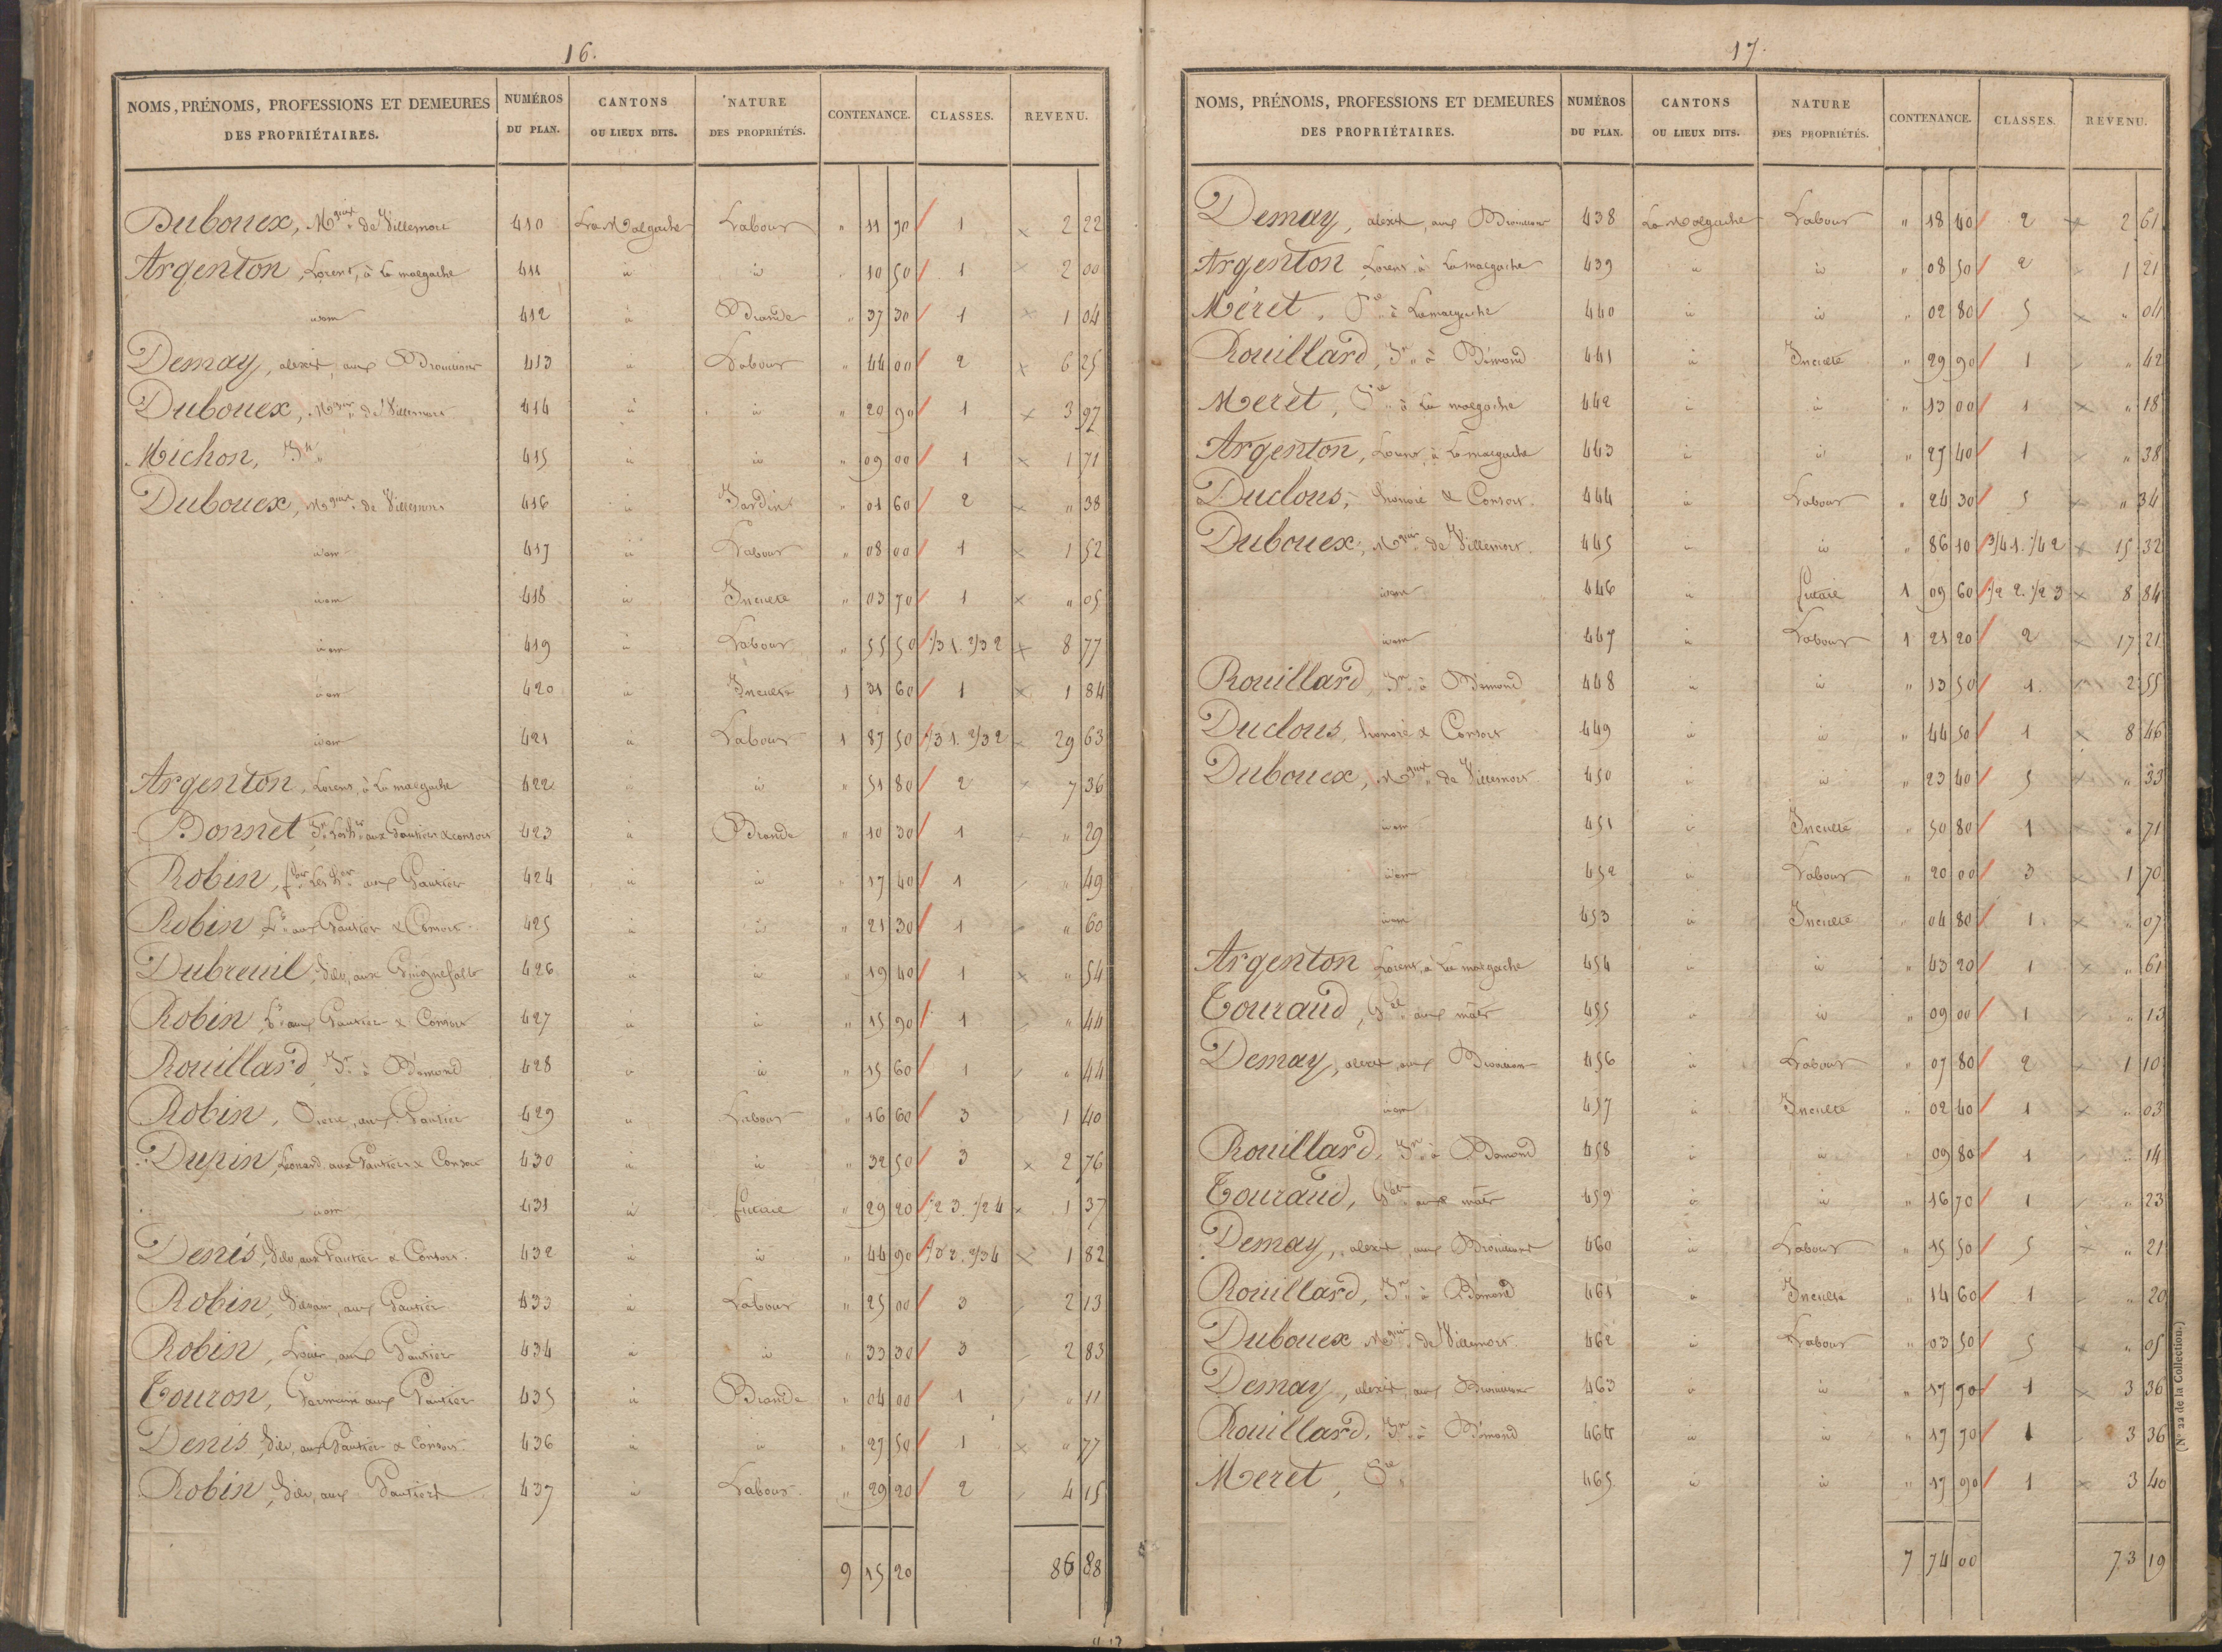 16.
NOMS, PRÉNOMS, PROFESSIONS ET DEMEURES DES PROPRIÉTAIRES. NUMÉROS DU PLAN. CANTONS OU LIEUX DITS. NATURE DES PROPRIÉTÉS. CONTENANCE. CLASSES. REVENU.
Dubouex, Mquise de Villemort 410 La Malgache Labour " 11 70 1 2 22
Argenton, Lorent, à La malgache 411 id id " 10 50 1 2 00
idem 412 id Brande " 37 30 1 1 04
Demay, alexis, aux 413 id Labour " 44 00 2 6 25
Dubouex, Mquise de Villemort 414 id id " 20 90 1 3 97
Michon, Jn 415 id id " 09 00 1 1 71
Dubouex, Mquise de Villemort 416 id Jardin " 01 60 2 " 38
idem 417 id Labour " 08 00 1 1 52
idem 418 id Inculte " 03 70 1 " 05
idem 419 id Labour " 55 50 1/3 1. 2/3 2 8 77
idem 420 id Inculte 1 31 60 1 1 84
idem 421 id Labour 1 87 50 1/3 1. 2/3 2 29 63
Argenton, Lorent, à La malgache 422 id id " 51 80 2 7 36
Bonnet Jn aux Gautiers & consors 423 id Brande " 10 30 1 " 29
Robin, Les hers aux Gautier 424 id id " 17 40 1 " 49
Robin Ls aux Gautier & Consors 425 id id " 21 30 1 " 60
Dubreuil, Silv, aux Guignefolle 426 id id " 19 40 1 " 54
Robin Ls aux Gautier & Consors 427 id id " 15 90 1 " 44
Rouillard Jn à Bémond 428 id id " 15 60 1 " 44
Robin, Pierre, aux Gautier 429 id Labour " 16 60 3 1 40
Dupin, Léonard aux Gautier & Consors 430 id id " 32 50 3 2 76
idem 431 id futaie " 29 20 1/2 3. 1/2 4 1 37
Denis, Silv, aux Gautier & Consors. 432 id id " 44 90 1/3 2. 2/3 4 1 82
Robin, Silvain, aux Gautier 433 id Labour " 25 00 3 2 13
Robin, Louis, aux Gautier 434 id id " 33 30 3 2 83
Touron, Germain aux Gautier 435 id Brande " 04 00 1 " 11
Denis, Silv, aux Gautier & Consors. 436 id id " 27 50 1 " 77
Robin, Silv, aux Gautiers 437 id Labour " 29 20 2 4 15
9 15 20 86 88
17.
NOMS, PRÉNOMS, PROFESSIONS ET DEMEURES DES PROPRIÉTAIRES. NUMÉROS DU PLAN. CANTONS OU LIEUX DITS. NATURE DES PROPRIÉTÉS. CONTENANCE. CLASSES. REVENU.
Demay, alexis, aux 438 La Malgache Labour " 18 40 2 2 61
Argenton Lorent à La malgache 439 id id " 08 50 2 1 21
Méret, à La malgache 440 id id " 02 80 5 " 04
Rouillard, Jn à Bémond 441 id Inculte " 29 90 1 " 42
Meret, à La malgache 442 id id " 13 00 1 " 18
Argenton, Lorent à La malgache 443 id id " 27 40 1 " 38
Duclous, honoré & Consors. 444 id Labour " 24 30 5 " 34
Dubouex, Mquise de Villemort. 445 id id " 86 10 3/4 1. 1/4 2 15 32
idem 446 id futaie 1 09 60 1/2 2. 1/2 3 8 84
idem 447 id Labour 1 21 20 2 17 21
Rouillard, Jn à Bémond 448 id id " 13 50 1. 2 55
Duclous, honoré & Consors 449 id id " 44 50 1 8 46
Dubouex, Mquise de Villemort 450 id id " 23 40 5 " 33
idem 451 id Inculte " 50 80 1 " 71
idem 452 id Labour " 20 00 3 1 70
idem 453 id Inculte " 04 80 1. " 07
Argenton Lorent, à La malgache 454 id id " 43 20 1 " 61
Touraud, Gel aux mats 455 id id " 09 00 1 " 13
Demay, alexis, aux 456 id Labour " 07 80 2 1 10
idem 457 id Inculte " 02 40 1 " 03
Rouillard, Jn à Bémond 458 id id " 09 80 1 " 14
Touraud, Gel aux mats 459 id id " 16 70 1 " 23
Demay, alexis, aux 460 id Labour " 15 50 5 " 21
Rouillard, Jn à Bémond 461 id Inculte " 14 60 1 " 20
Dubouex Mquise de Villemort. 462 id Labour " 03 50 5 " 05
Demay, alexis, aux 463 id id " 17 70 1 3 36
Rouillard, Jn à Bémond 464 id id " 17 70 1 3 36
Meret, 465 id id " 17 90 1 3 40
7 74 00 73 19
(N° 22 de la Collection.)